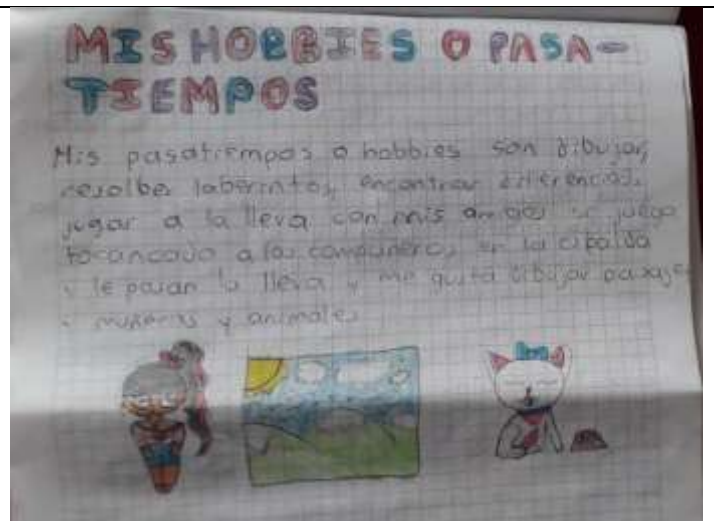 MIS HOBBIES O PASA-
TIEMPOS
Mis pasatiempos o hobbies son dibujar,
resolber laberintos, encontrar diferencias,
jugar a la lleva con mis amigos se juega
tocancado a los compañeros en la espalda
y le pasan la lleva y me gusta dibujar paisajes
y muñecas y animales